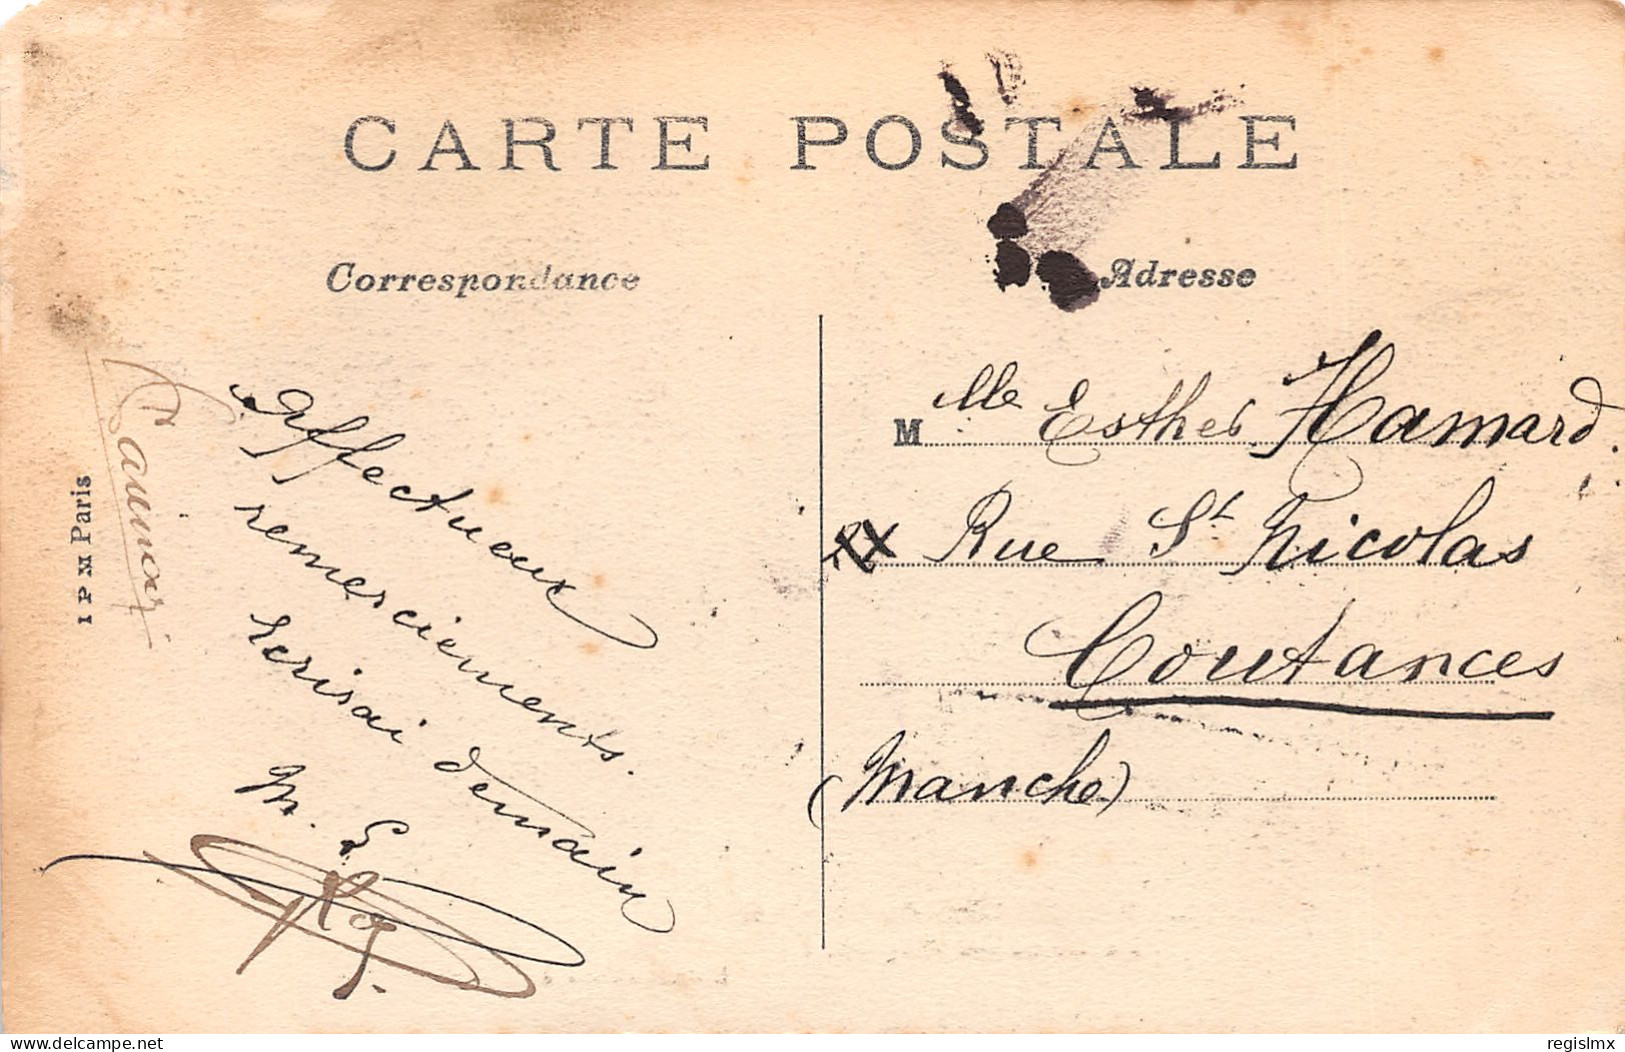 CARTE POSTALE
Correspondance
Adresse
Affectueux
remerciements.
Lerisai demain
M. L.
I P M Paris
Mlle Esther Hamard.
Rue St Nicolas
Coutances
(Manche)
www.delcampe.net
regislmx